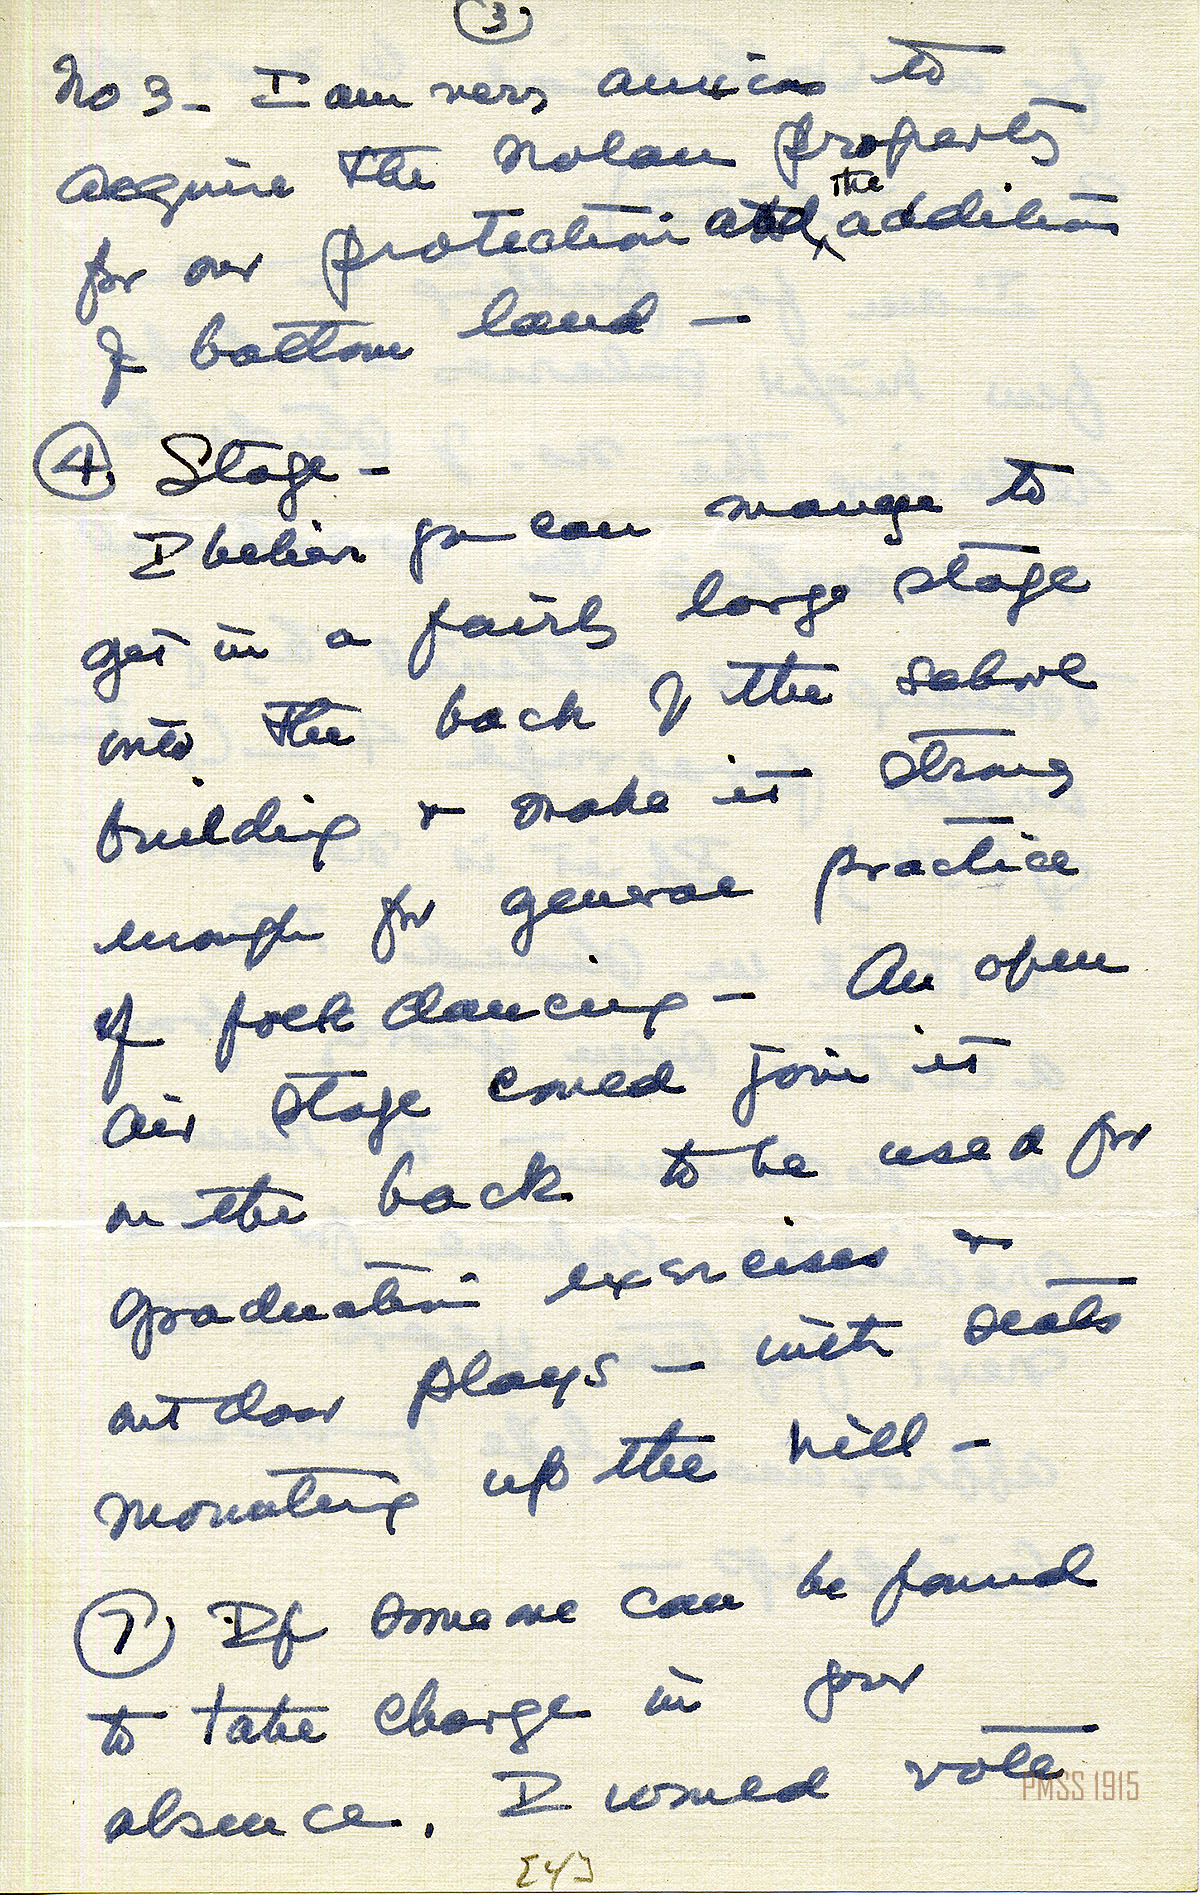 (3)
No 3 - I am very anxious to
acquire the Nolan property
for our protection and the addition
of bottom land -
(4.) Stage -
I believe you can manage to
get in a fairly large stage
into the back of the school
building & make it strong
enough for general practice
of folk dancing - An open
air stage could join it
on the back to be used for
graduation exercises &
out door plays - with seats
mounting up the hill -
(7) If someone can be found
to take charge in your
absence, I would vote
PMSS 1915
[4]